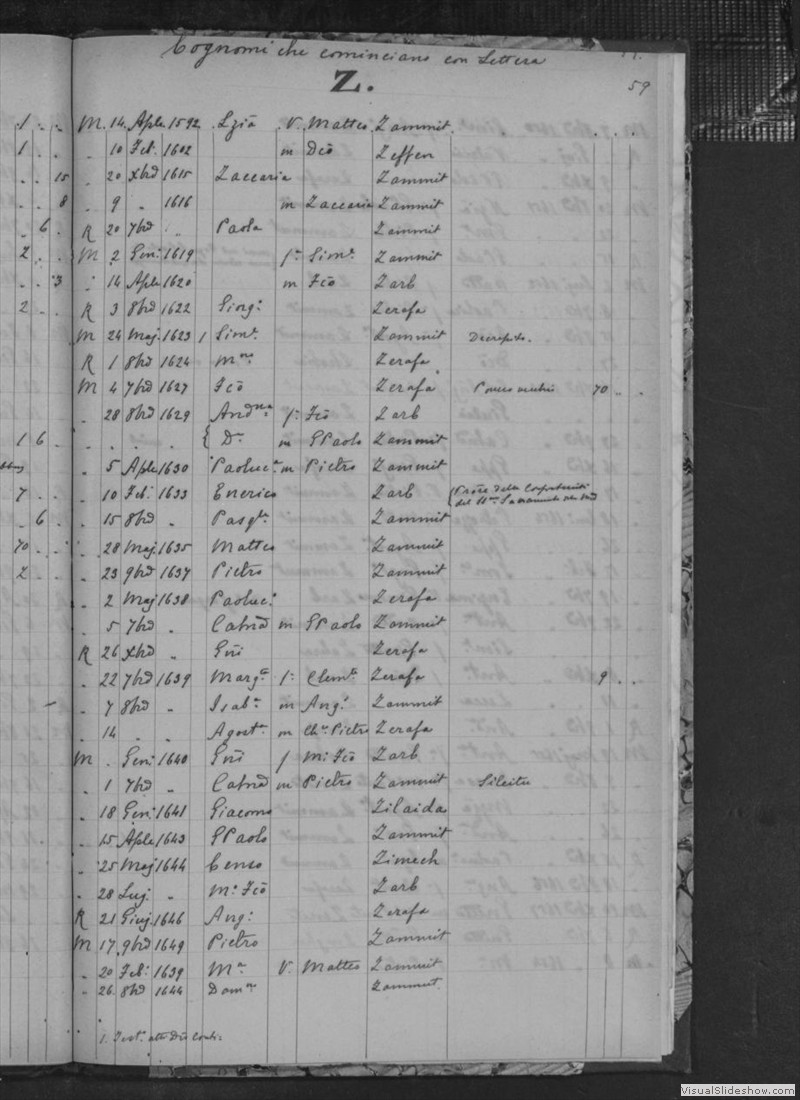 Cognomi che cominciano con Lettera
Z.
59
1 . . M. 14 Aple 1592 Lziã V. Matteo Zammit
1 . . " 10 Feb. 1602 m Dco Zeffen
. . 15 " 20 Xbrd 1615 Zaccaria Zammit
. . 8 " 9 " 1616 m Zaccaria Zammit
. 6 . R 20 7brd " Paola Zammit
2 . . M 2 Gen: 1619 f: Simn. Zammit
. . 3 " 14 Aple 1620 m Fcõ Zarb
2 . . R 3 8brd 1622 Giorg: Zerafa
M 24 Maj. 1623 1 Simn. Zammit Decrepito.
R 1 8brd 1624 Mna Zerafa
M 4 7brd 1627 Fcõ Zerafa 70 . .
" 28 8brd 1629 f: Fcõ Zarb
1 6 . " " " { Da m GPaolo Zammit
" 5 Aple 1630 Paoluca m Pietro Zammit
7 . . " 10 Feb: 1633 Enerico Zarb
. 6 . " 15 8brd " Pasqle Zammit
70 . . " 28 Maj 1635 Matteo Zammit
2 . . " 23 9brd 1637 Pietro Zammit
" 2 Maj 1638 Paoluc: Zerafa
" 5 7brd " Catnã m GPaolo Zammit
R 26 Xbrd " Gñi Zerafa
" 22 7brd 1639 Margta f: Clemte Zerafa 9 . .
" 7 8brd " Isaba m Ang: Zammit
" 14 " " Agosta m Chn Pietro Zerafa
M . Gen: 1640 Gñi f Mo Fcõ Zarb
" 1 7brd " Catnã m Pietro Zammit
" 18 Gen: 1641 Giacomo Zilaida
" 15 Aple 1643 GPaolo Zammit
" 25 Maj 1644 Censo Zimech
" 28 Lug. " Mo Fcõ Zarb
R 21 Giug 1646 Ang: Zerafa
M 17 9brd 1649 Pietro Zammit
" 20 Feb: 1639 Ma V. Matteo Zammit
" 26 8brd 1644 Domca Zammit
VisualSlideshow.com